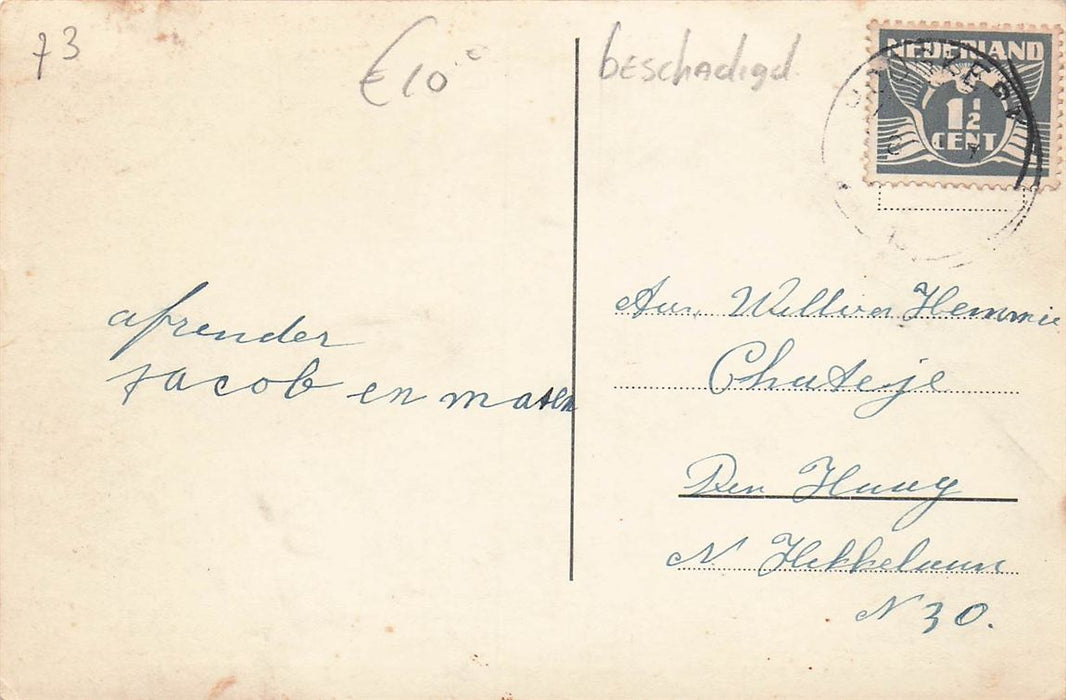 73
€10
beschadigd
NEDERLAND
1½
CENT
afzender
Jacob en
Aan Willem Hemmie
Den Haag
N. Hekkelaan
N 30.